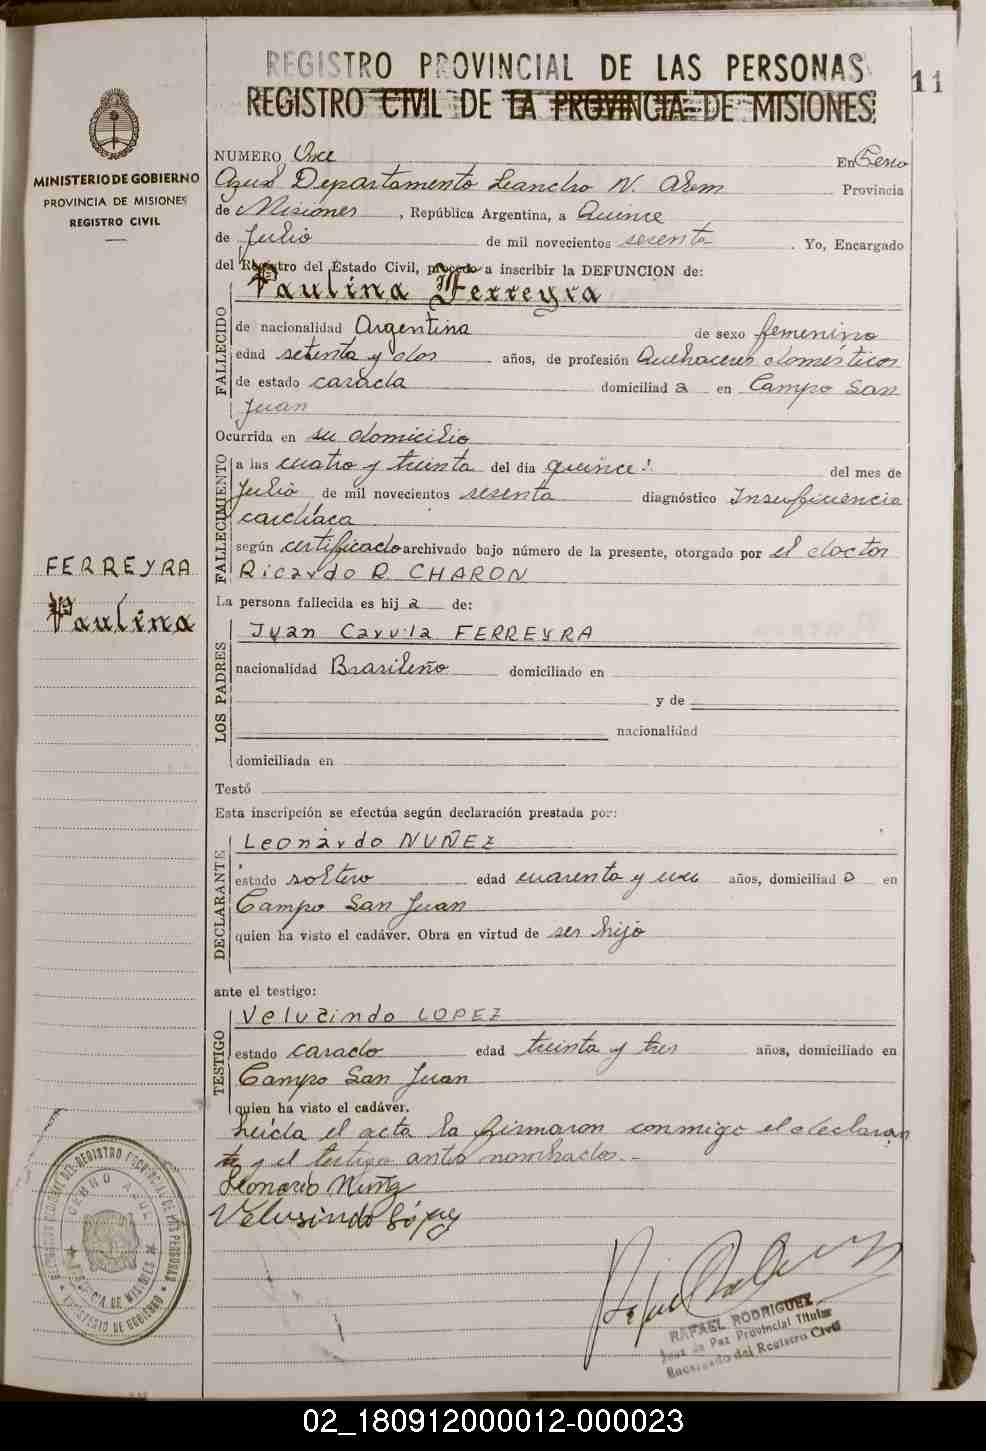 REGISTRO PROVINCIAL DE LAS PERSONAS
REGISTRO CIVIL DE LA PROVINCIA DE MISIONES
11
MINISTERIO DE GOBIERNO
PROVINCIA DE MISIONES
REGISTRO CIVIL
NUMERO Once En Cerro
Azul Departamento Leandro N. Alem Provincia
de Misiones , República Argentina, a Quince
de Julio de mil novecientos sesenta . Yo, Encargado
del Registro del Estado Civil, procedo a inscribir la DEFUNCION de:
FALLECIDO
Paulina Ferreyra
de nacionalidad Argentina de sexo femenino
edad setenta y dos años, de profesión Quehaceres domésticos
de estado casada domiciliad a en Campo San
Juan
Ocurrida en su domicilio
FALLECIMIENTO
a las cuatro y treinta del día quince del mes de
Julio de mil novecientos sesenta diagnóstico Insuficiencia
cardíaca
según certificado archivado bajo número de la presente, otorgado por el doctor
Ricardo R. CHARON
FERREYRA
Paulina
La persona fallecida es hij a de:
LOS PADRES
Juan Carvila FERREYRA
nacionalidad Brasileño domiciliado en
y de
nacionalidad
domiciliada en
Testó
Esta inscripción se efectúa según declaración prestada por:
DECLARANTE
Leonardo NUÑEZ
estado soltero edad cuarenta y un años, domiciliad o en
Campo San Juan
quien ha visto el cadáver. Obra en virtud de ser hijo
ante el testigo:
TESTIGO
Veluzindo LOPEZ
estado casado edad treinta y tres años, domiciliado en
Campo San Juan
quien ha visto el cadáver.
Leída el acta la firmaron conmigo el declaran
te y el testigo antes nombrados.-
Leonardo Nuñez
Velusindo López
CERRO AZUL
PROVINCIA DE MISIONES
MINISTERIO DE GOBIERNO
RAFAEL RODRIGUEZ
Juez de Paz Provincial Titular
Encargado del Registro Civil
02_180912000012-000023